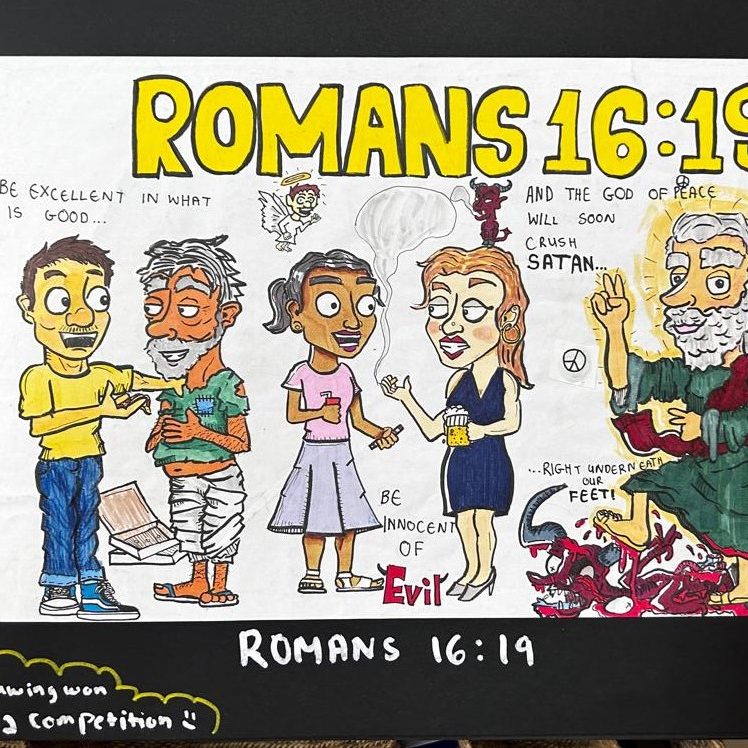 ROMANS 16:19
BE EXCELLENT IN WHAT
IS GOOD...
AND THE GOD OF PEACE
WILL SOON
CRUSH
SATAN...
...RIGHT UNDERNEATH
OUR
FEET!
BE
INNOCENT
OF
Evil
ROMANS 16:19
won
competition